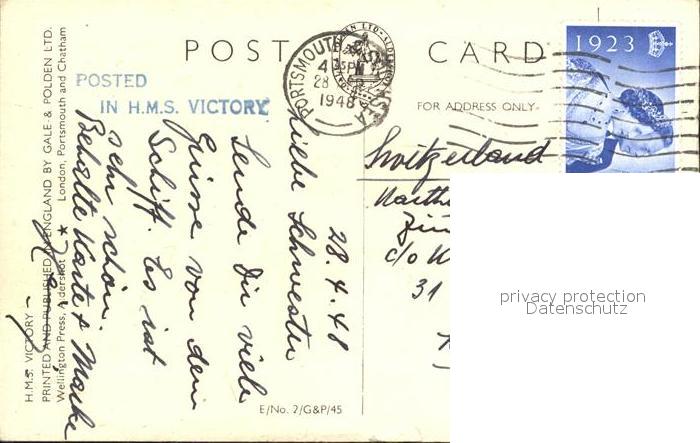 POST CARD
FOR ADDRESS ONLY
1923
PORTSMOUTH
28
1948
POSTED
IN H.M.S. VICTORY
28.4.48
Liebe Schwester
Sende Dir viele
Grüsse von dem
Schiff. Es ist
sehr schön.
Behalte Karte & Marke
Switzerland
c/o
31
privacy protection
Datenschutz
H.M.S. VICTORY
PRINTED AND PUBLISHED IN ENGLAND BY GALE & POLDEN LTD.
Wellington Press, Aldershot ★ London, Portsmouth and Chatham
E/No. 2/G&P/45